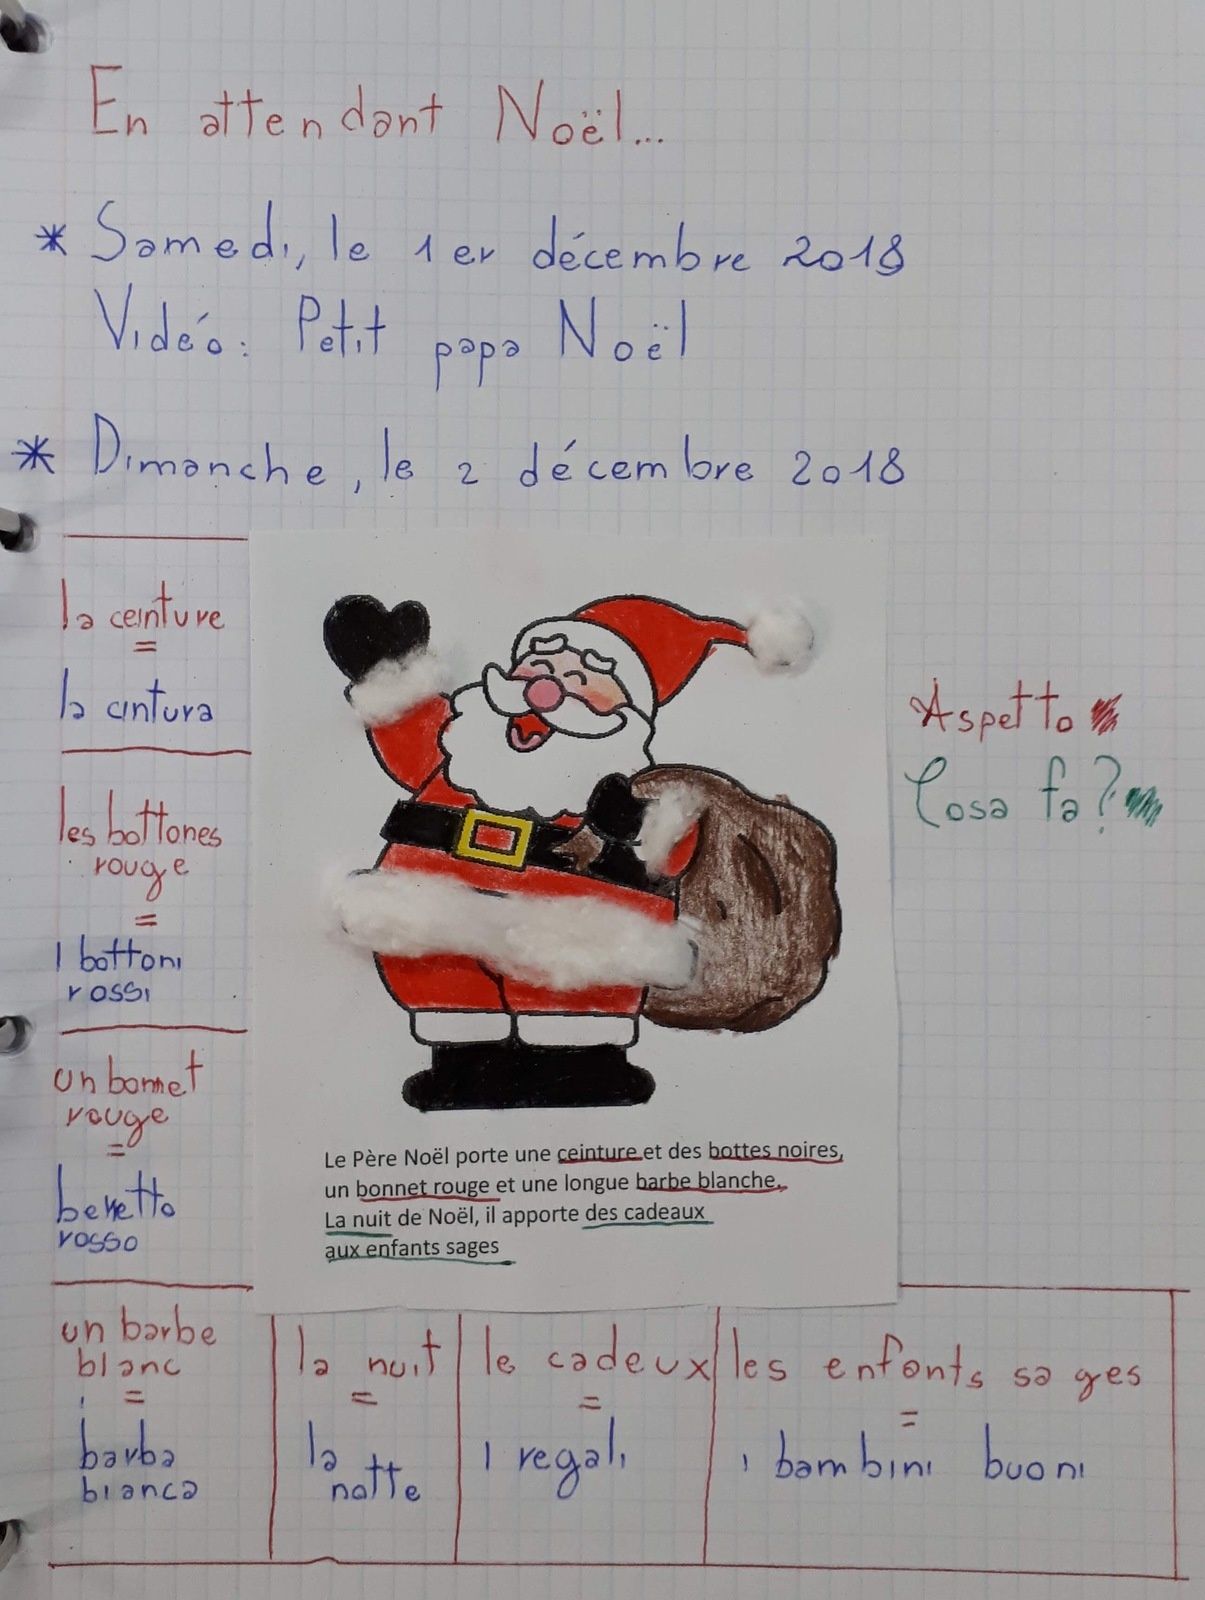 En attendant Noël...
* Samedi, le 1er décembre 2018
Vidéo: Petit papa Noël
* Dimanche, le 2 décembre 2018
la ceinture
=
la cintura
les bottones
rouge
=
I bottoni
rossi
un bonnet
rouge
=
beretto
rosso
Aspetto
Cosa fa?
Le Père Noël porte une ceinture et des bottes noires,
un bonnet rouge et une longue barbe blanche.
La nuit de Noël, il apporte des cadeaux
aux enfants sages
un barbe
blanc
=
barba
bianca
la nuit
=
la
notte
le cadeux
=
I regali
les enfants sages
=
i bambini buoni